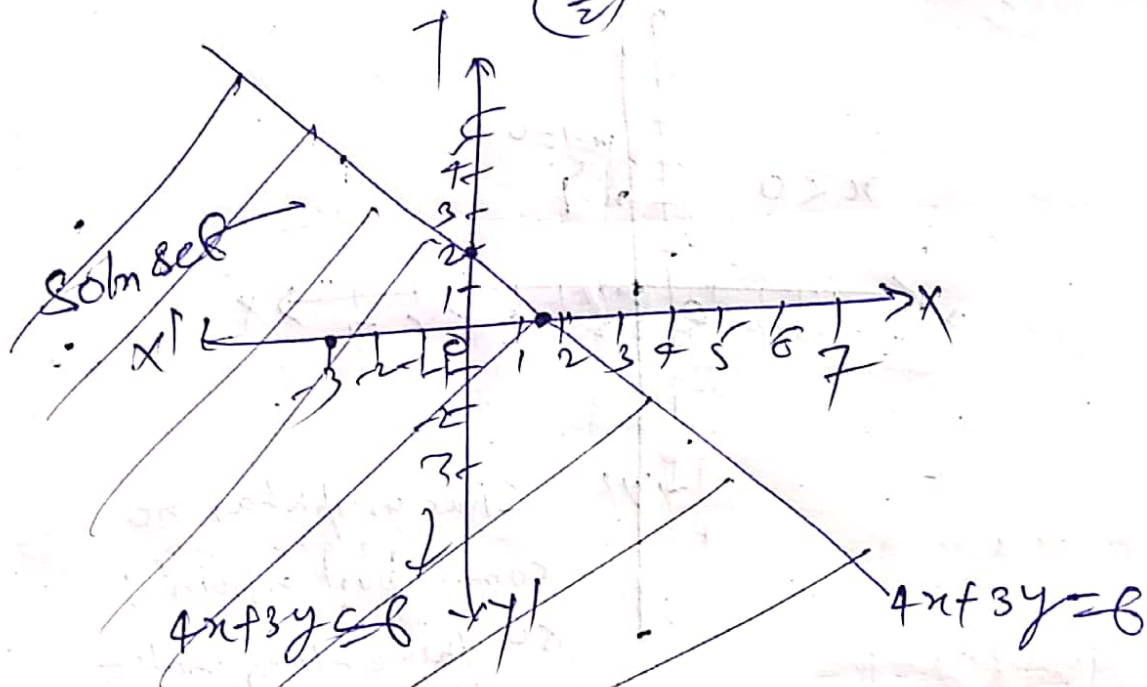 5
4
3
soln set
2
1
X
X'
-3 -2 -1 0 1 2 3 4 5 6 7
-2
3
4x+3y≤6
y'
4x+3y=6